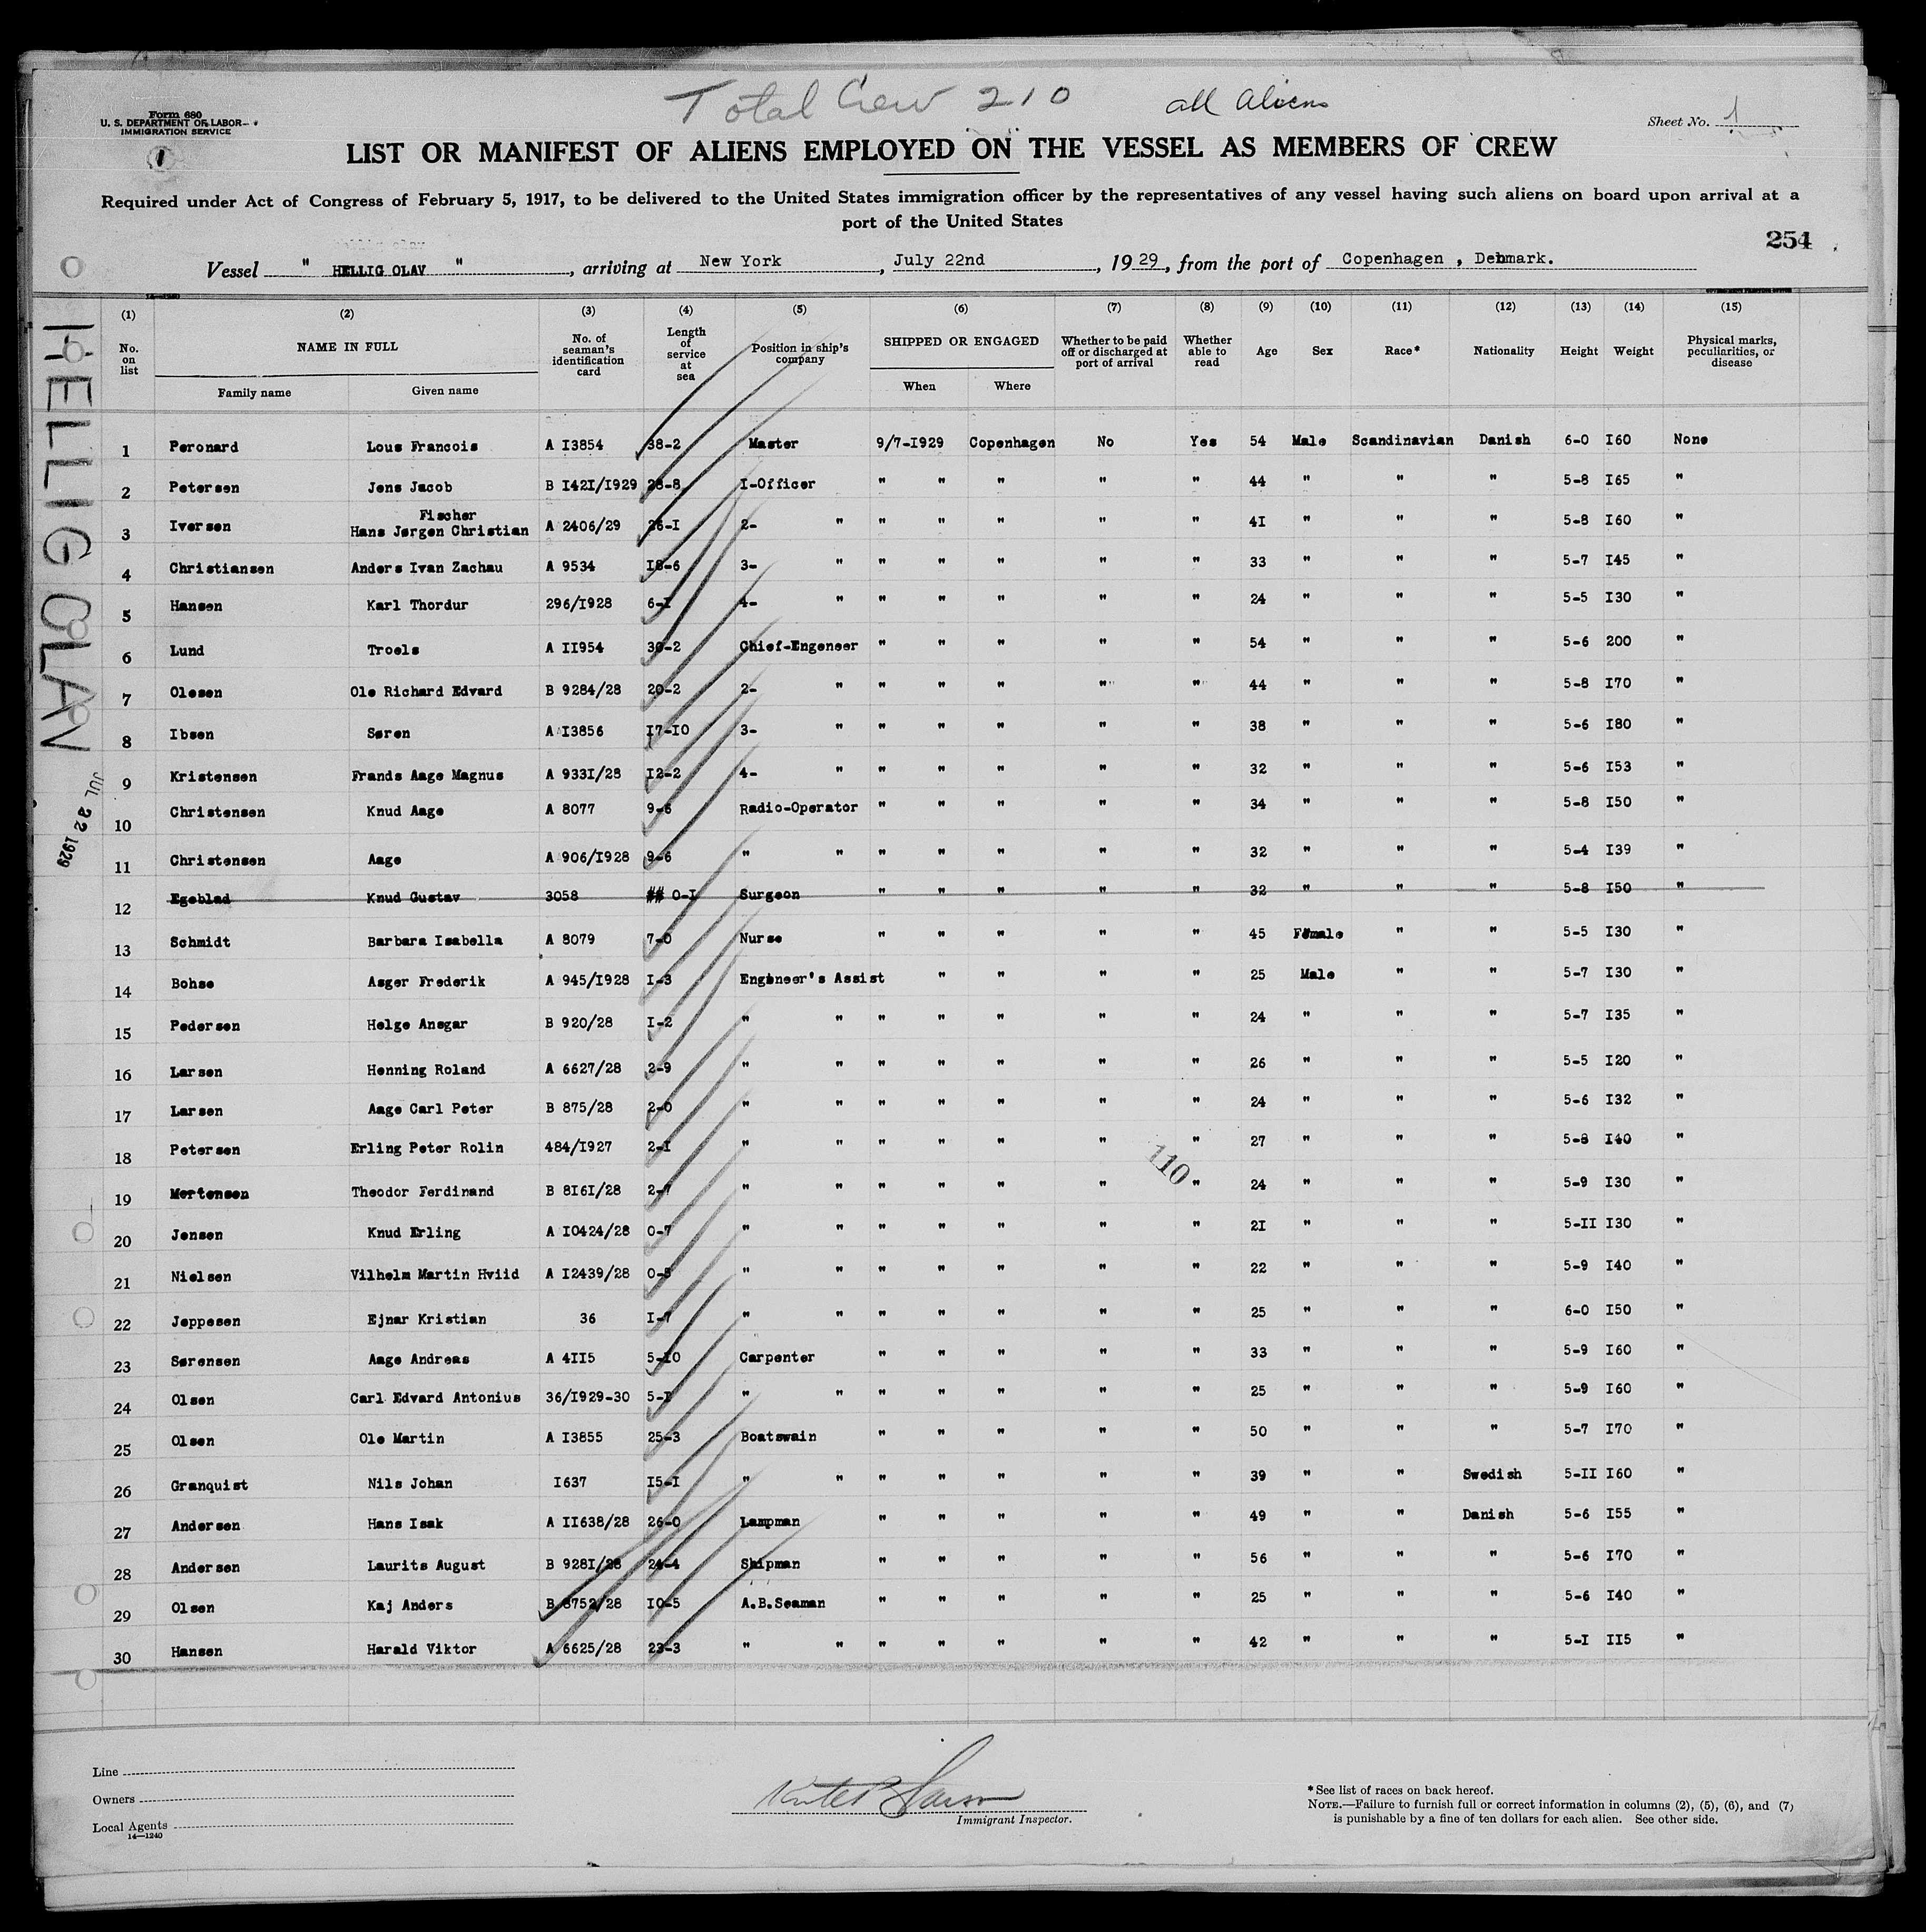 Total Crew 210 all Aliens
Form 680
U. S. DEPARTMENT OF LABOR
IMMIGRATION SERVICE
1
Sheet No. 1
LIST OR MANIFEST OF ALIENS EMPLOYED ON THE VESSEL AS MEMBERS OF CREW
Required under Act of Congress of February 5, 1917, to be delivered to the United States immigration officer by the representatives of any vessel having such aliens on board upon arrival at a
port of the United States
254
Vessel " HELLIG OLAV ", arriving at New York, July 22nd, 1929, from the port of Copenhagen , Denmark.
HELLIG OLAV
JUL 22 1929
(1) (2) (3) (4) (5) (6) (7) (8) (9) (10) (11) (12) (13) (14) (15)
No. on list NAME IN FULL Family name Given name No. of seaman's identification card Length of service at sea Position in ship's company SHIPPED OR ENGAGED When Where Whether to be paid off or discharged at port of arrival Whether able to read Age Sex Race* Nationality Height Weight Physical marks, peculiarities, or disease
1 Peronard Lous Francois A I3854 38-2 Master 9/7-I929 Copenhagen No Yes 54 Male Scandinavian Danish 6-0 I60 None
2 Petersen Jens Jacob B I42I/I929 28-8 I-Officer " " " " " 44 " " " 5-8 I65 "
3 Iversen Fischer Hans Jørgen Christian A 2406/29 26-I 2- " " " " " " 4I " " " 5-8 I60 "
4 Christiansen Anders Ivan Zachau A 9534 I8-6 3- " " " " " " 33 " " " 5-7 I45 "
5 Hansen Karl Thordur 296/I928 6-I 4- " " " " " " 24 " " " 5-5 I30 "
6 Lund Troels A II954 30-2 Chief-Engeneer " " " " " 54 " " " 5-6 200 "
7 Olesen Ole Richard Edvard B 9284/28 20-2 2- " " " " " " 44 " " " 5-8 I70 "
8 Ibsen Søren A I3856 I7-I0 3- " " " " " " 38 " " " 5-6 I80 "
9 Kristensen Frands Aage Magnus A 933I/28 I2-2 4- " " " " " " 32 " " " 5-6 I53 "
10 Christensen Knud Aage A 8077 9-6 Radio-Operator " " " " " 34 " " " 5-8 I50 "
11 Christensen Aage A 906/I928 9-6 " " " " " " " 32 " " " 5-4 I39 "
12 Egeblad Knud Gustav 3058 ## 0-I Surgeon " " " " " 32 " " " 5-8 I50 "
13 Schmidt Barbara Isabella A 8079 7-0 Nurse " " " " " 45 Female " " 5-5 I30 "
14 Bohse Asger Frederik A 945/I928 I-3 Engineer's Assist " " " " 25 Male " " 5-7 I30 "
15 Pedersen Helge Ansgar B 920/28 I-2 " " " " " " " 24 " " " 5-7 I35 "
16 Larsen Henning Roland A 6627/28 2-9 " " " " " " " 26 " " " 5-5 I20 "
17 Larsen Aage Carl Peter B 875/28 2-0 " " " " " " " 24 " " " 5-6 I32 "
18 Petersen Erling Peter Rolin 484/I927 2-I " " " " " " " 27 " " " 5-8 I40 "
110
19 Mortensen Theodor Ferdinand B 8I6I/28 2-7 " " " " " " " 24 " " " 5-9 I30 "
20 Jensen Knud Erling A I0424/28 0-7 " " " " " " " 2I " " " 5-II I30 "
21 Nielsen Vilhelm Martin Hviid A I2439/28 0-8 " " " " " " " 22 " " " 5-9 I40 "
22 Jeppesen Ejnar Kristian 36 I-7 " " " " " " " 25 " " " 6-0 I50 "
23 Sørensen Aage Andreas A 4II5 5-I0 Carpenter " " " " " 33 " " " 5-9 I60 "
24 Olsen Carl Edvard Antonius 36/I929-30 5-I " " " " " " " 25 " " " 5-9 I60 "
25 Olsen Ole Martin A I3855 25-3 Boatswain " " " " " 50 " " " 5-7 I70 "
26 Granquist Nils Johan I637 I5-I " " " " " " " 39 " " Swedish 5-II I60 "
27 Andersen Hans Isak A II638/28 26-0 Lampman " " " " " 49 " " Danish 5-6 I55 "
28 Andersen Laurits August B 928I/28 24-4 Shipman " " " " " 56 " " " 5-6 I70 "
29 Olsen Kaj Anders B 8752/28 I0-5 A.B.Seaman " " " " " 25 " " " 5-6 I40 "
30 Hansen Harald Viktor A 6625/28 23-3 " " " " " " " 42 " " " 5-I II5 "
Line
Owners
Local Agents
14—1240
Immigrant Inspector.
*See list of races on back hereof.
NOTE.—Failure to furnish full or correct information in columns (2), (5), (6), and (7)
is punishable by a fine of ten dollars for each alien. See other side.